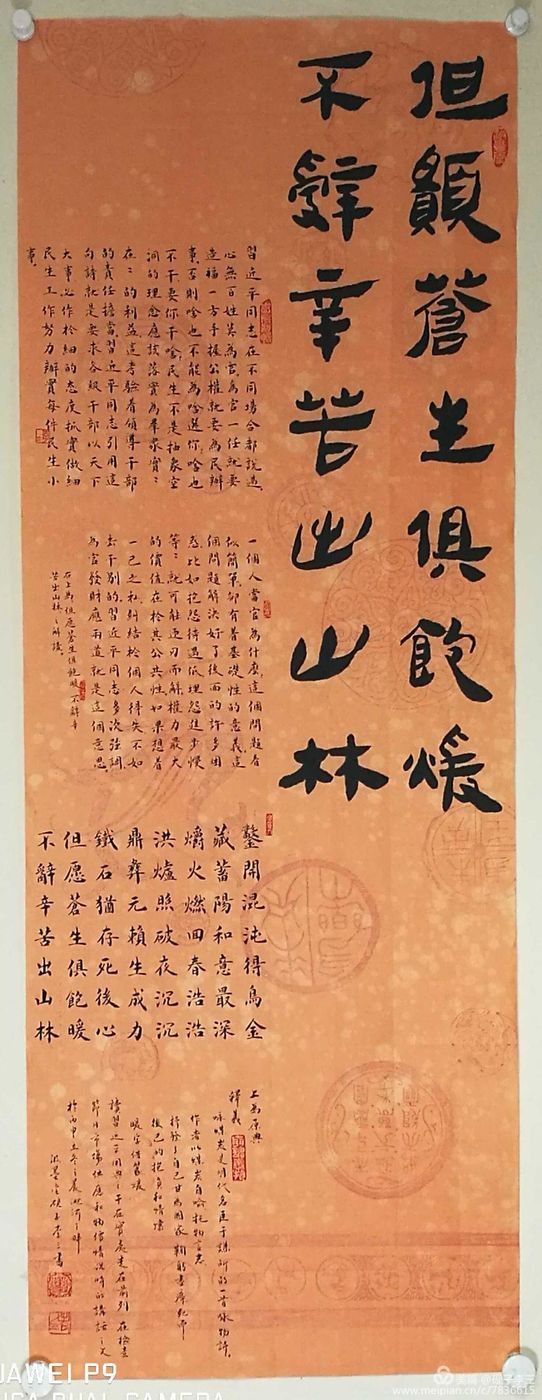 但願蒼生俱飽煖
不辭辛苦出山林
習近平同志在不同場合都說過
心無百姓莫為官為官一任就要
造福一方手握公權就要為民辦
事否則啥也不能為啥選你啥也
不干要你干啥民生不是抽象空
洞的理念應該落實為羣衆實〻
在〻的利益這考驗着領導干部
的責任擔當習近平同志引用這
句詩就是要求各級干部以天下
大事必作於細的态度抓實做細
民生工作努力辦實每件民生小
事
一個人當官為什麼這個問題看
似簡單却有着基礎性的意義這
個問題解決好了後面的許多困
惑比如抱怨待遇低埋怨進步慢
等〻就可能迎刃而解權力最大
的價值在於其公共性如果想着
一己之私糾結於個人得失不如
去干别的習近平同志多次強調
為官發財應兩道就是這個意思
右上為但愿蒼生俱飽暖不辭辛
苦出山林之解讀
鑿開混沌得烏金
藏蓄陽和意最深
爝火燃回春浩浩
洪爐照破夜沉沉
鼎彝元賴生成力
鐵石猶存死後心
但愿蒼生俱飽暖
不辭辛苦出山林
上為原典
釋義
咏煤炭是明代名臣于謙所的一首咏物詩
作者以煤炭自喻托物言志
抒發了自己甘為國家鞠躬盡瘁死而
後已的抱負和情懷
HUAWEI P9
LEICA DUAL CAMERA
美篇
www.meipian.cn/c/77836615